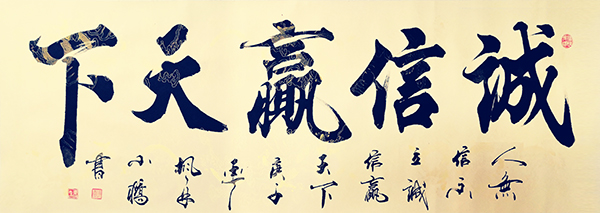 誠信贏天下
人無
信不
立誠
信贏
天下
庚子
夏
小
書